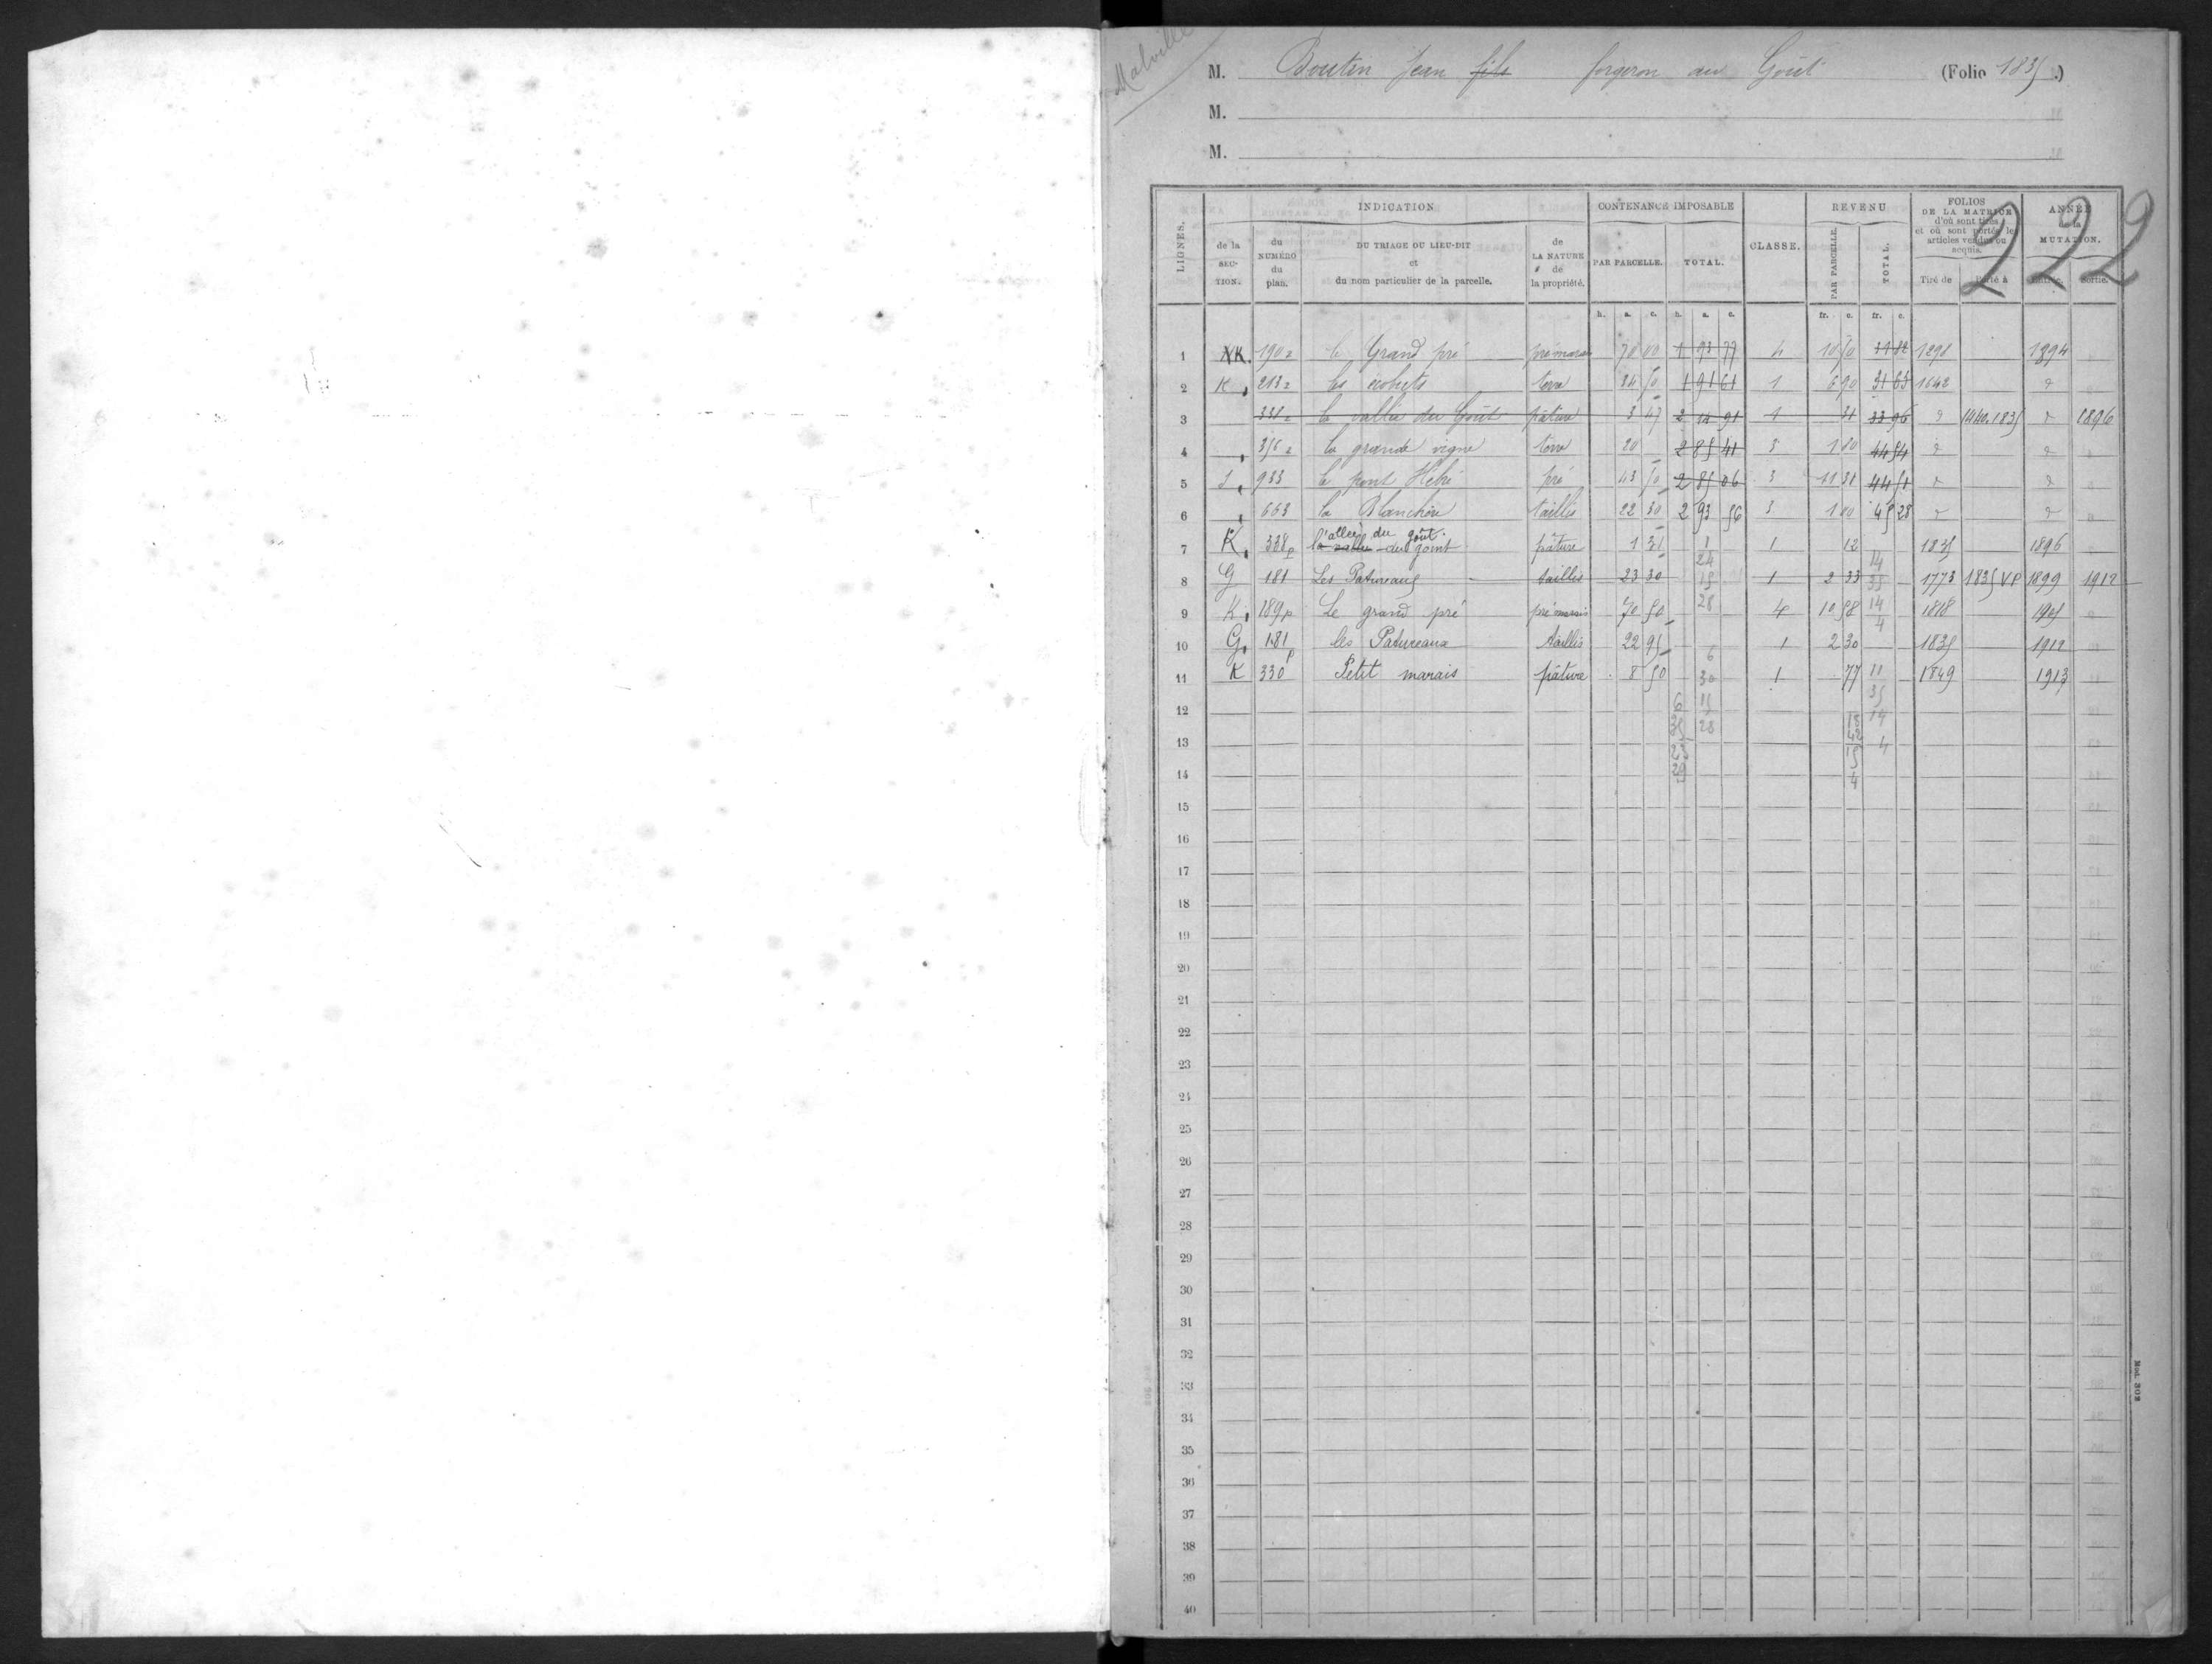 Malville
M. Boutin Jean fils forgeron au Goût (Folio 1835.)
M.
M.
222
LIGNES. INDICATION CONTENANCE IMPOSABLE CLASSE. REVENU FOLIOS DE LA MATRICE d'où sont tirés et où sont portés les articles vendus ou acquis. ANNÉE de la MUTATION.
de la SECTION. du NUMÉRO du plan. DU TRIAGE OU LIEU-DIT et du nom particulier de la parcelle. de LA NATURE de la propriété. PAR PARCELLE. TOTAL. PAR PARCELLE. TOTAL. Tiré de Porté à Entrée. Sortie.
h. a. c. h. a. c. fr. c. fr. c.
1 K. 190 le Grand pré pré marais 70 00 1 93 77 4 10 50 1291 1894
2 K 213 les tene 34 50 1 91 61 1 6 90 31 63 1642 d
3 338 la vallée du Goût pâture 3 47 2 14 91 1 31 33 96 d 1440.1835 d 1896
4 356 la grande vigne terre 20 2 85 41 3 1 80 44 54 d d
5 J 933 le pont Hébé pré 43 50 2 85 06 3 11 31 44 51 d d
6 663 la Blanchère taillis 22 30 2 93 56 3 1 00 45 28 d d
7 K. 338p la vallée du goint l'allée du goût. pâture 1 31 1 1 12 1835 1896
24 14
8 G 181 Les Patureaux taillis 23 30 15 1 2 33 35 1773 1835 VP 1899 1912
9 K. 189p Le grand pré pré marais 70 50 28 4 10 58 14 1818 1901
4
10 G. 181p les Patureaux taillis 22 95 6 1 2 30 1835 1912
11 K 330 Petit marais pâture 8 50 30 1 77 11 1849 1913
12 6 15 35
35 28 18 14
13 23 42 4
14 29 15
4
15
16
17
18
19
20
21
22
23
24
25
26
27
28
29
30
31
32
33
34
35
36
37
38
39
40
Mod. 302